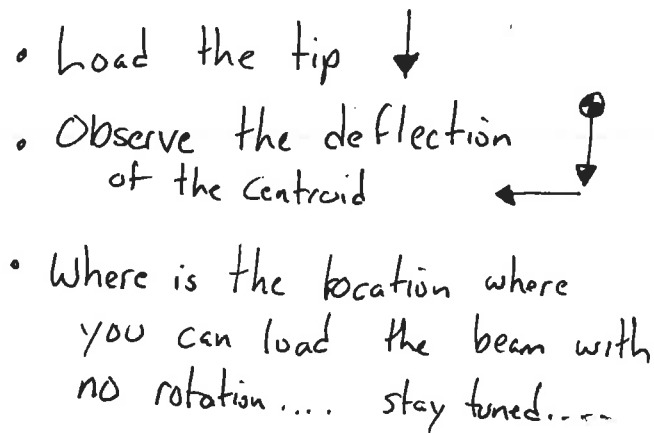 • Load the tip
• Observe the deflection
of the Centroid
• Where is the location where
you can load the beam with
no rotation.... stay tuned.....